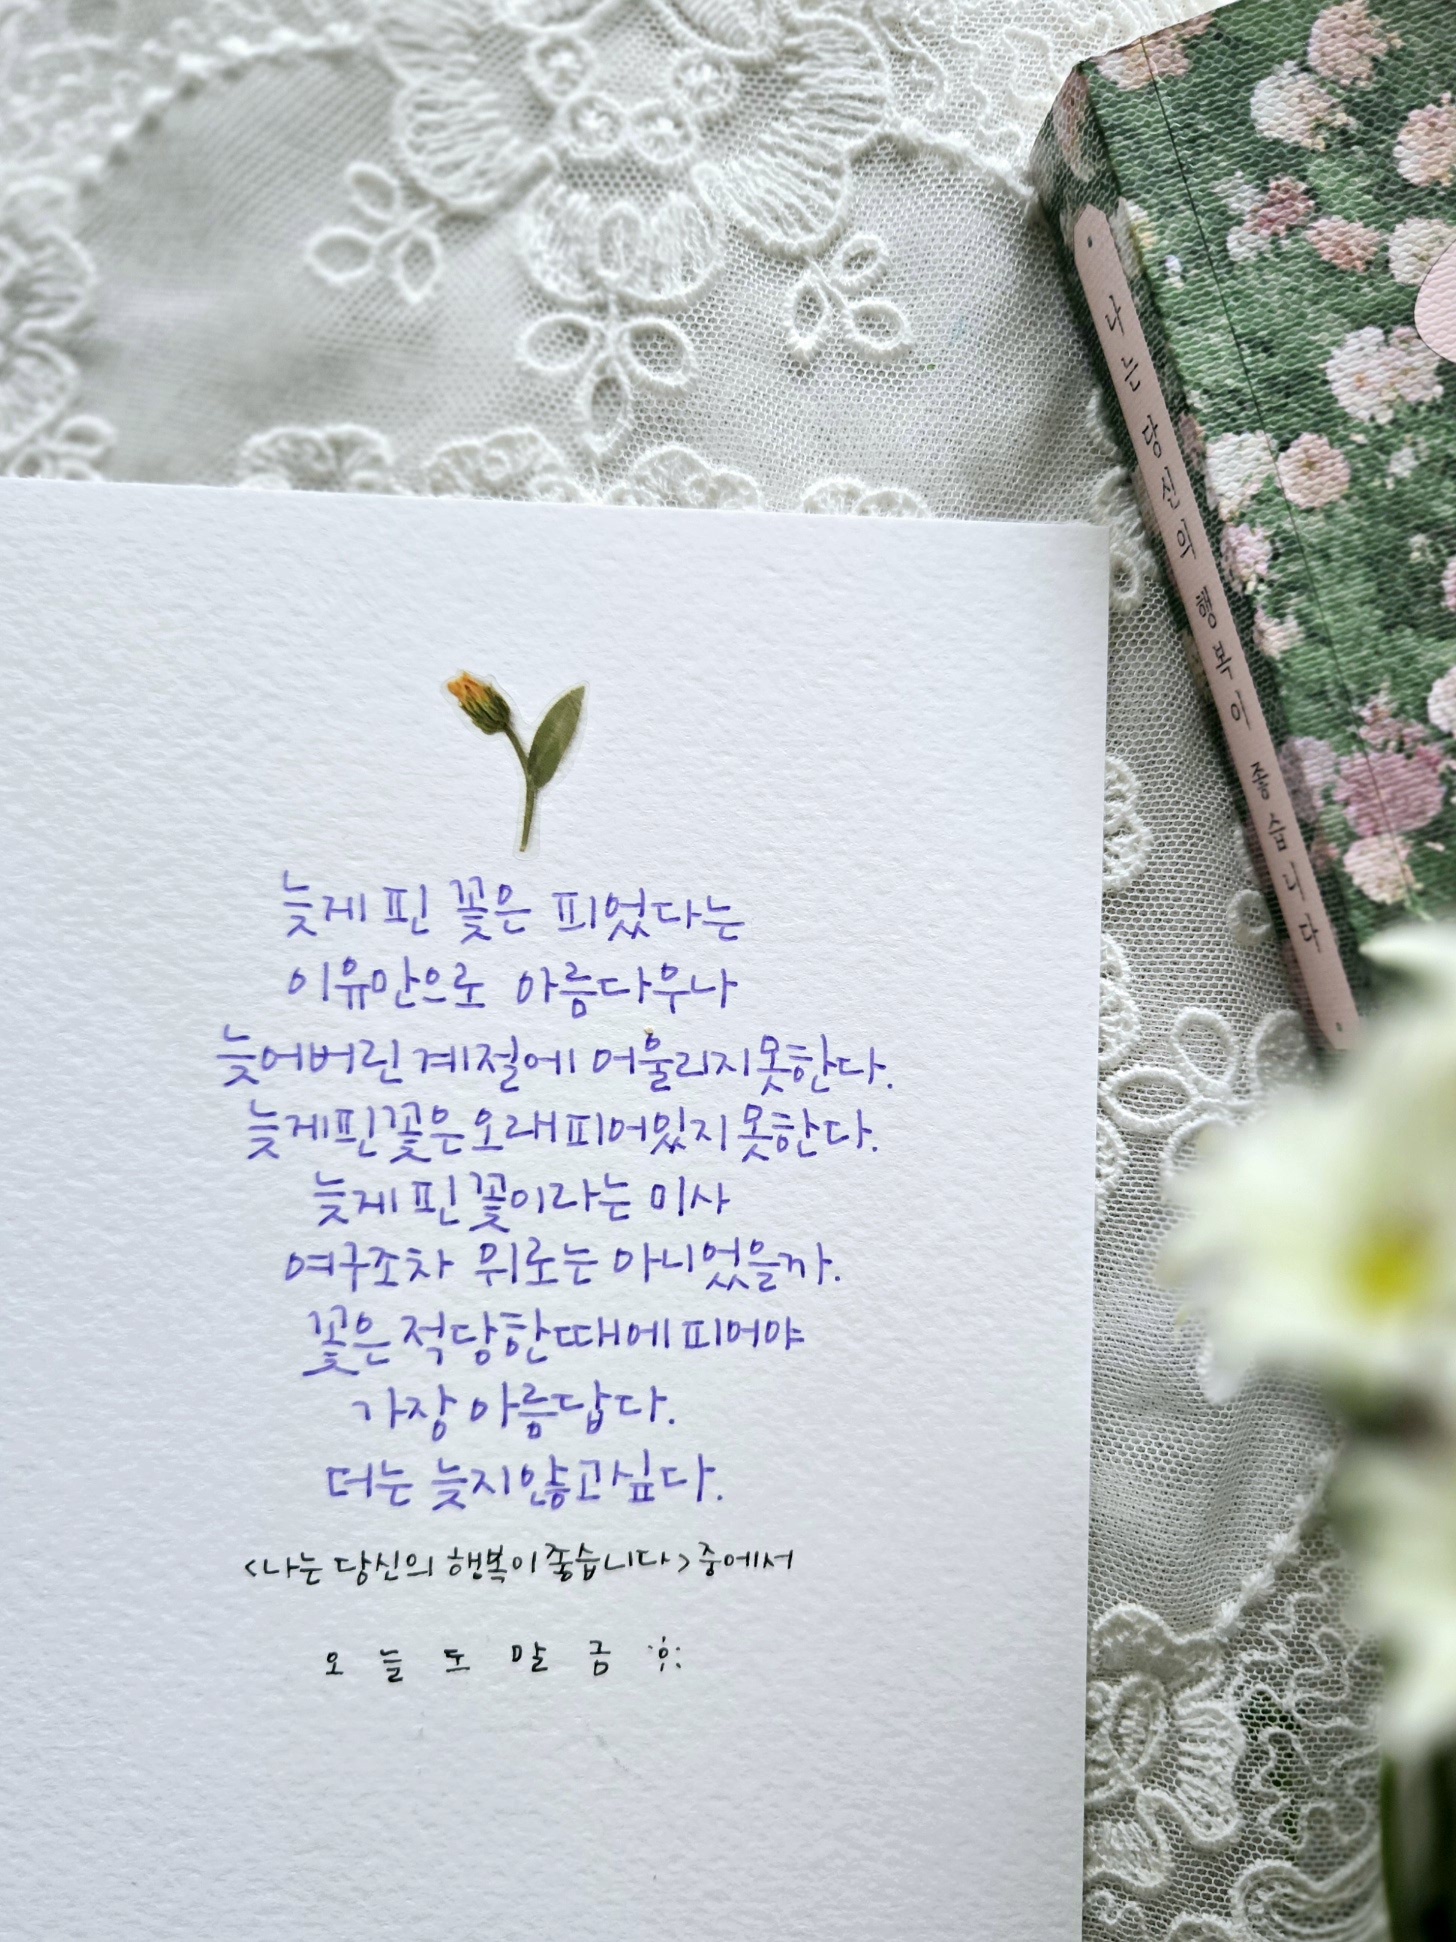 늦게 핀 꽃은 피었다는
이유만으로 아름다우나
늦어버린 계절에 어울리지 못한다.
늦게 핀 꽃은 오래 피어있지 못한다.
늦게 핀 꽃이라는 미사
여구조차 위로는 아니었을까.
꽃은 적당한 때에 피어야
가장 아름답다.
더는 늦지 않고 싶다.
<나는 당신의 행복이 좋습니다> 중에서
오늘도 말금
나는 당신의 행복이 좋습니다